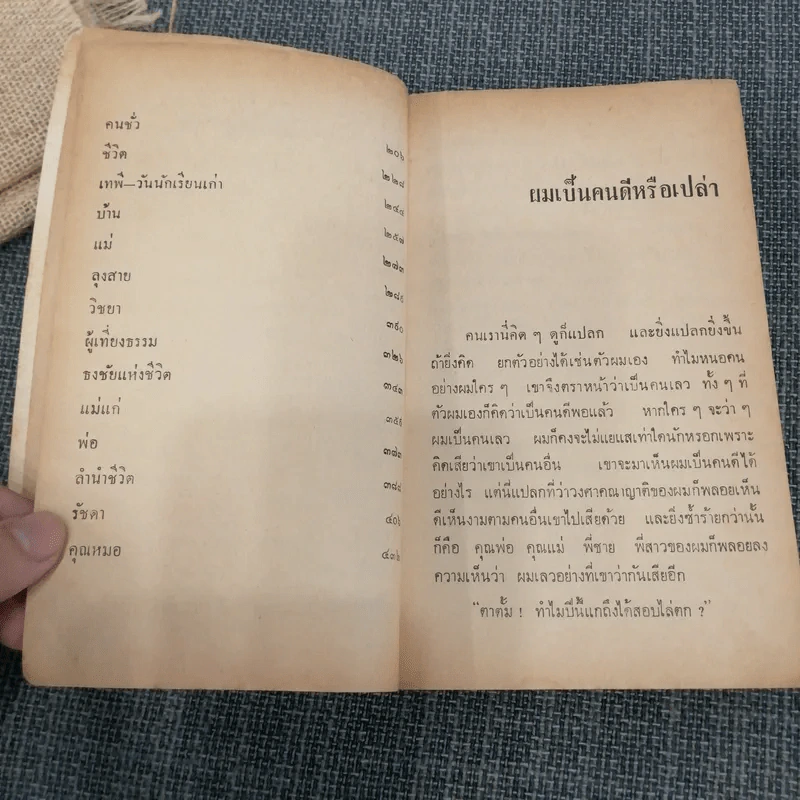 คนชั่ว ๒๐๖
ชีวิต ๒๒๘
เทพี—วันนักเรียนเก่า ๒๔๔
บ้าน ๒๕๗
แม่ ๒๗๓
ลุงสาย ๒๘๙
วิชยา ๓๑๐
ผู้เที่ยงธรรม ๓๒๖
ธงชัยแห่งชีวิต ๓๔๓
แม่แก่ ๓๕๖
พ่อ ๓๗๓
ลำนำชีวิต ๓๘๘
รัชดา ๔๐๖
คุณหมอ ๔๓๖
ผมเป็นคนดีหรือเปล่า
คนเรานี่คิด ๆ ดูก็แปลก และยิ่งแปลกยิ่งขึ้น
ถ้ายิ่งคิด ยกตัวอย่างได้เช่นตัวผมเอง ทำไมหนอคน
อย่างผมใคร ๆ เขาจึงตราหน้าว่าเป็นคนเลว ทั้ง ๆ ที่
ตัวผมเองก็คิดว่าเป็นคนดีพอแล้ว หากใคร ๆ จะว่า ๆ
ผมเป็นคนเลว ผมก็คงจะไม่แยแสเท่าใดนักหรอกเพราะ
คิดเสียว่าเขาเป็นคนอื่น เขาจะมาเห็นผมเป็นคนดีได้
อย่างไร แต่นี่แปลกที่ว่าวงศาคณาญาติของผมก็พลอยเห็น
ดีเห็นงามตามคนอื่นเขาไปเสียด้วย และยิ่งซ้ำร้ายกว่านั้น
ก็คือ คุณพ่อ คุณแม่ พี่ชาย พี่สาวของผมก็พลอยลง
ความเห็นว่า ผมเลวอย่างที่เขาว่ากันเสียอีก
“ตาตั้ม ! ทำไมปีนี้แกถึงได้สอบไล่ตก ?”